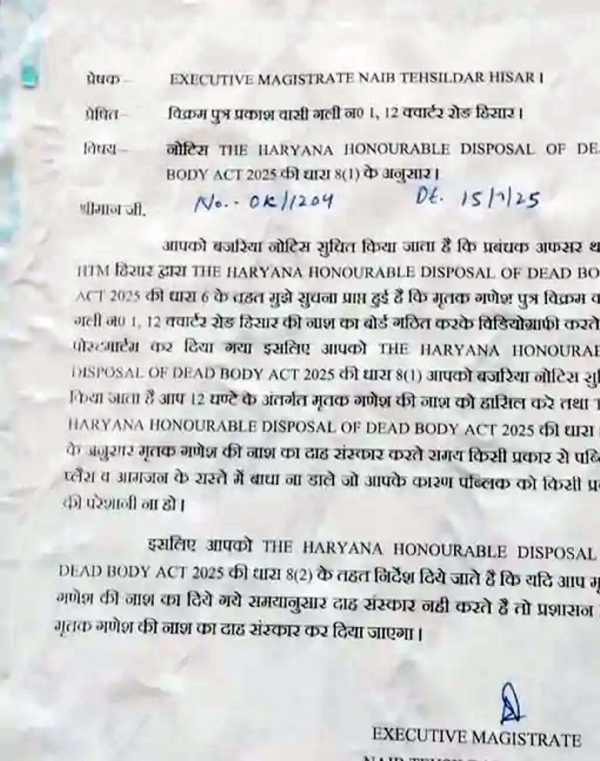 प्रेषक – EXECUTIVE MAGISTRATE NAIB TEHSILDAR HISAR।
प्रेषित – विक्रम पुत्र प्रकाश वासी गली न0 1, 12 क्वार्टर रोड हिसार।
विषय – नोटिस THE HARYANA HONOURABLE DISPOSAL OF DEA
BODY ACT 2025 की धारा 8(1) के अनुसार।
श्रीमान जी. No.- OK/1204 Dt. 15/7/25
आपको बजरिया नोटिस सुचित किया जाता है कि प्रबंधक अफसर थ
HTM हिसार द्वारा THE HARYANA HONOURABLE DISPOSAL OF DEAD BO
ACT 2025 की धारा 6 के तहत मुझे सुचना प्राप्त हुई है कि मृतक गणेश पुत्र विक्रम व
गली न0 1, 12 क्वार्टर रोड हिसार की नाश का बोर्ड गठित करके विडियोग्राफी करते
पोस्टमार्टम कर दिया गया इसलिए आपको THE HARYANA HONOURAB
DISPOSAL OF DEAD BODY ACT 2025 की धारा 8(1) आपको बजरिया नोटिस सुि
किया जाता है आप 12 घण्टे के अंतर्गत मृतक गणेश की नाश को हासिल करे तथा T
HARYANA HONOURABLE DISPOSAL OF DEAD BODY ACT 2025 की धारा
के अनुसार मृतक गणेश की नाश का दाह संस्कार करते समय किसी प्रकार से पब्लि
प्लैस व आगजन के रास्ते में बाधा ना डाले जो आपके कारण पब्लिक को किसी प्र
की परेशानी ना हो।
इसलिए आपको THE HARYANA HONOURABLE DISPOSAL
DEAD BODY ACT 2025 की धारा 8(2) के तहत निर्देश दिये जाते है कि यदि आप मृ
गणेश की नाश का दिये गये समयानुसार दाह संस्कार नही करते है तो प्रशासन
मृतक गणेश की नाश का दाह संस्कार कर दिया जाएगा।
EXECUTIVE MAGISTRATE